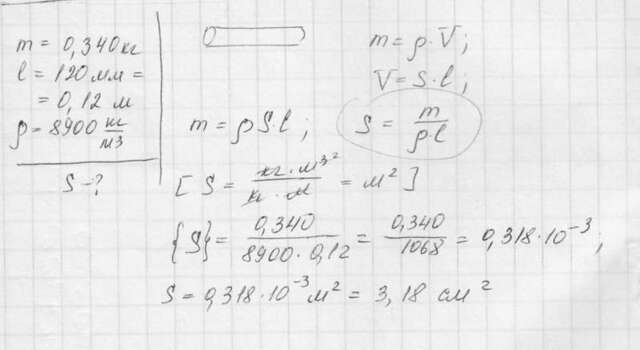 m = 0,340 кг
l = 120 мм =
= 0,12 м
ρ = 8900 кг/м3
S - ?
m = ρ·V;
V = S·l;
m = ρ S·l; S = m/ρ·l
[S = кг·м³²/кг·м = м²]
{S} = 0,340/8900·0,12 = 0,340/1068 = 0,318·10⁻³;
S = 0,318·10⁻³ м² = 3,18 см²